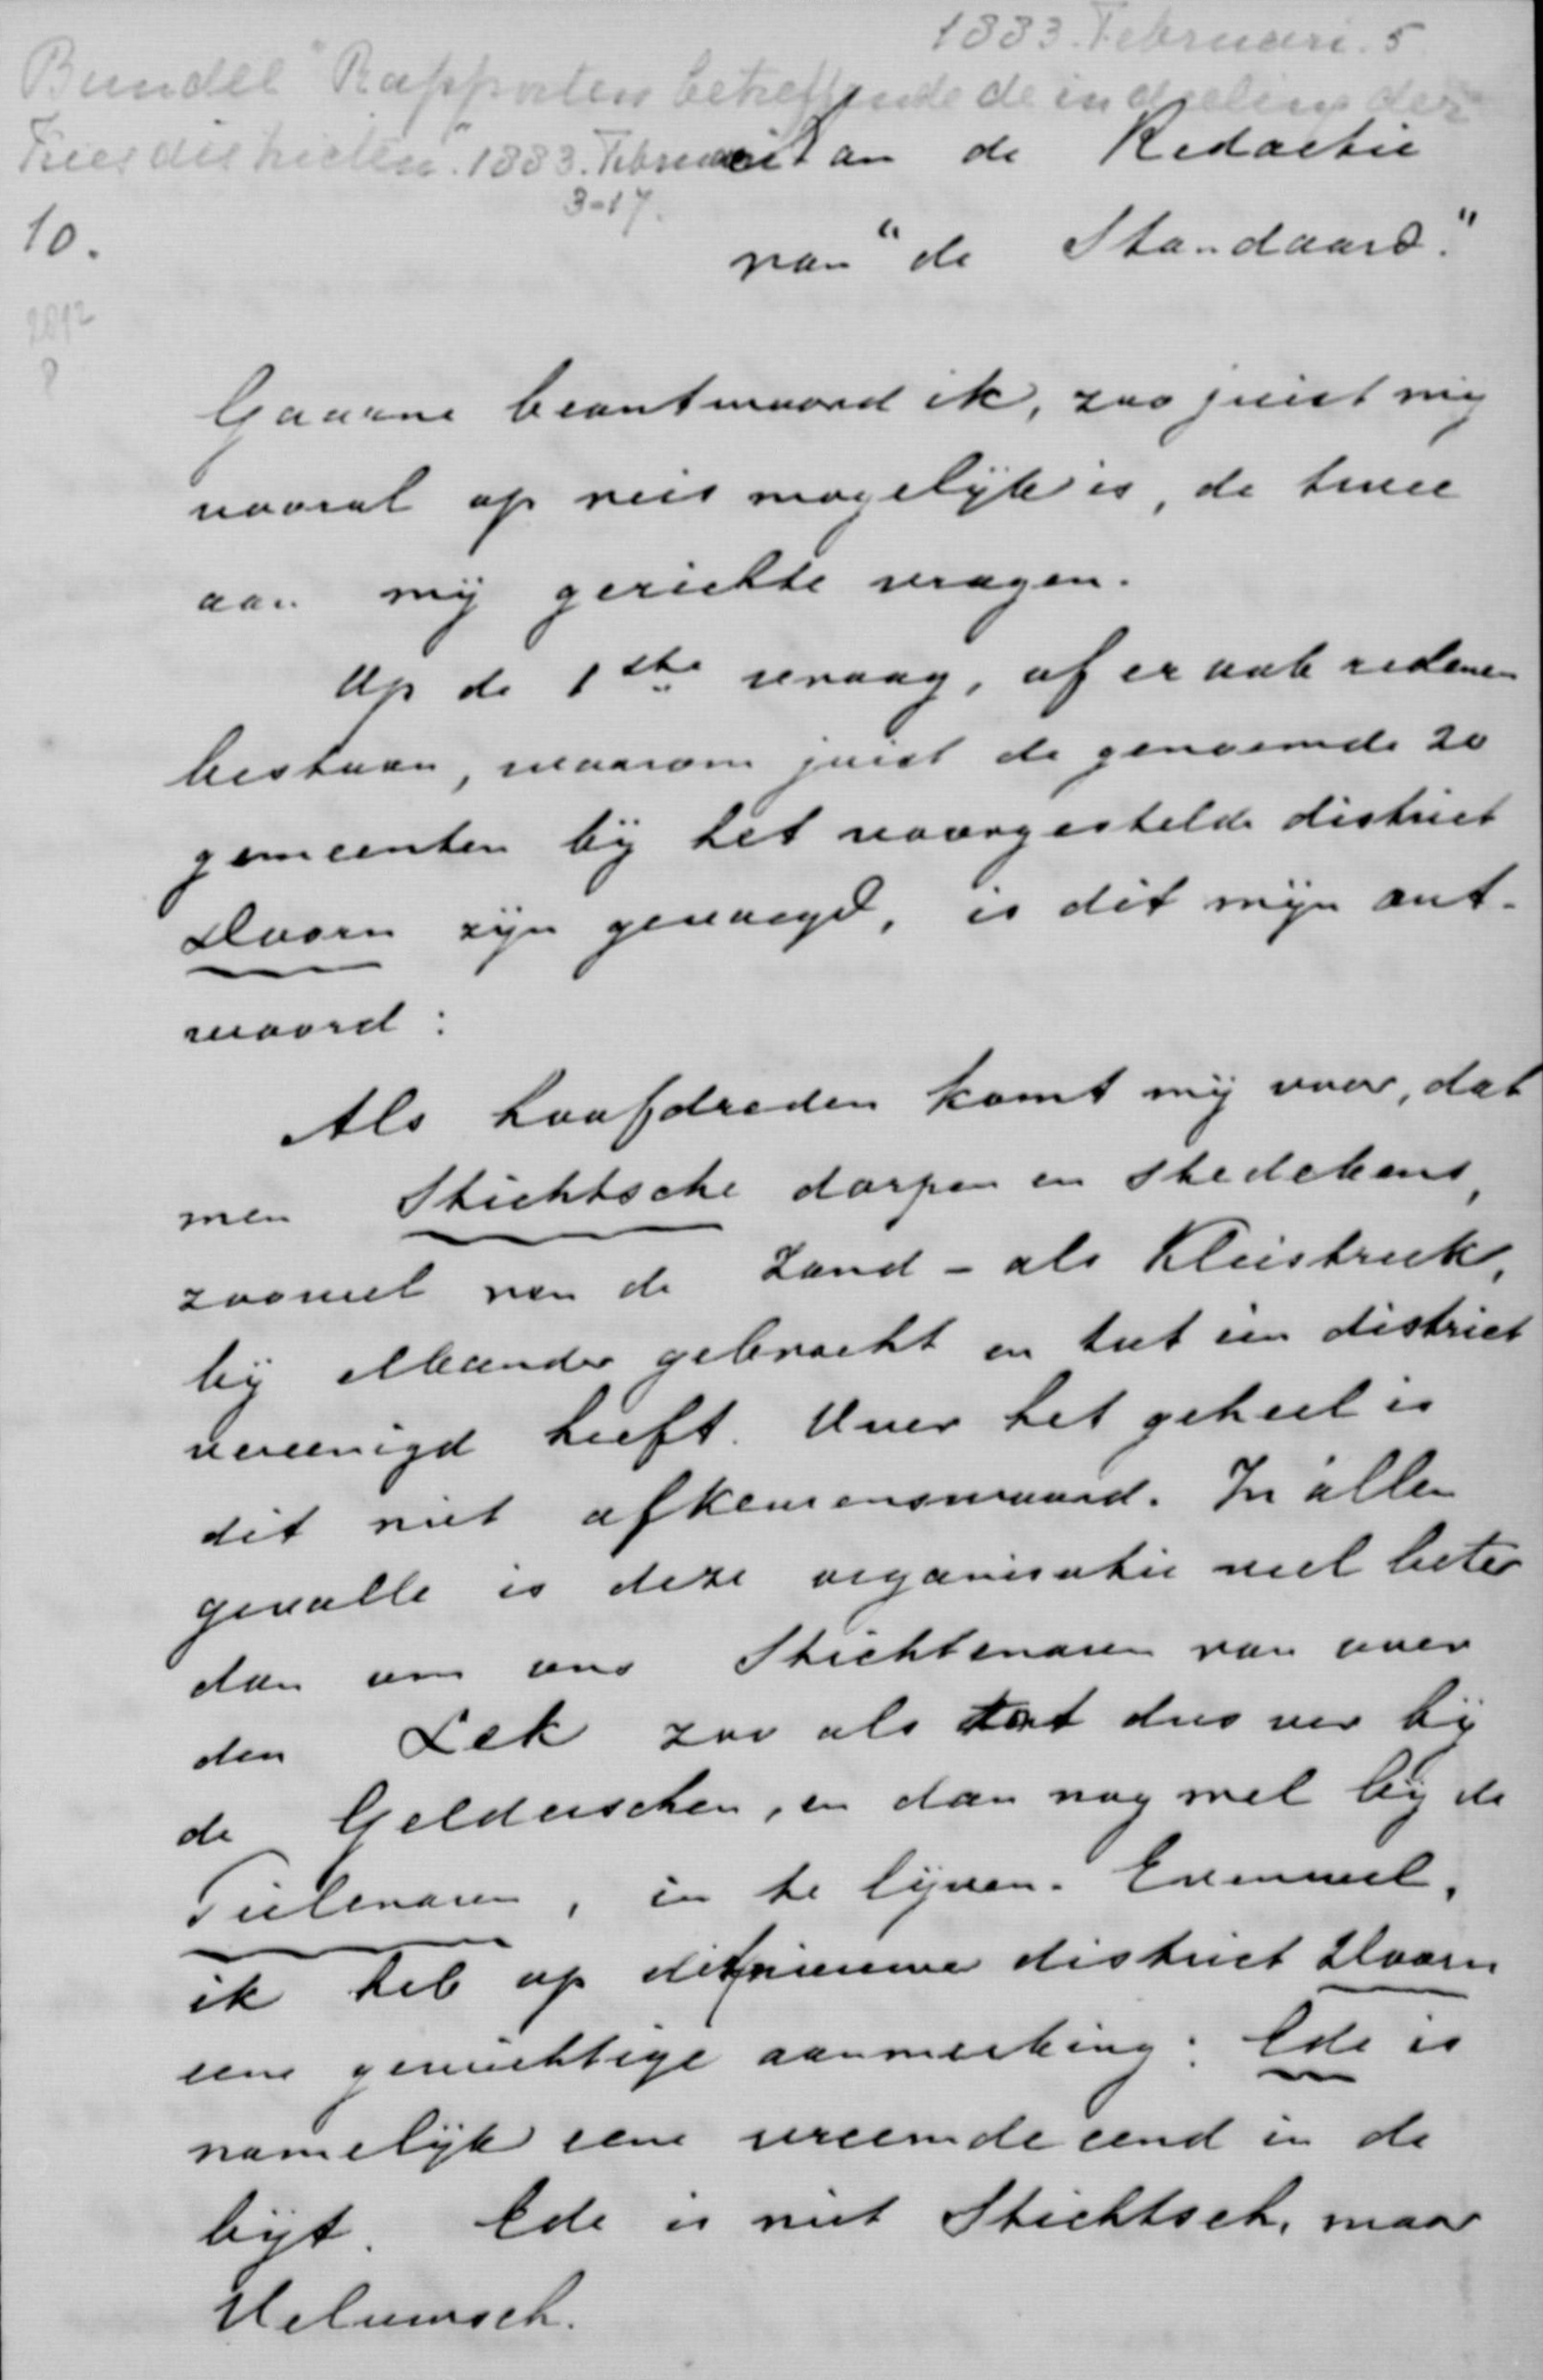 1883. Februari. 5
Bundel "Rapporten betreffende de indeeling der
Kiesdistricten". 1883. Februari
3-17.
Aan de Redactie
van "de Standaard."
10.
2012
8
Gaarne beantwoord ik, zoo juist mij
vooral op reis mogelijk is, de twee
aan mij gerichte vragen.
Op de 1ste vraag, of er ook redenen
bestaan, waarom juist de genoemde 20
gemeenten bij het voorgestelde district
Doorn zijn gevoegd, is dit mijn ant-
woord:
Als hoofdreden komt mij voor, dat
men Stichtsche dorpen en stedekens,
zoowel van de Zand- als Kleistreek,
bij elkander gebracht en tot één district
vereenigd heeft. Over het geheel is
dit niet afkeurenswaard. In allen
gevalle is deze organisatie veel beter
dan om ons Stichtenaren van over
den Lek zoo als tot dus ver bij
de Gelderschen, en dan nog wel bij de
Tielenaren, in te lijven. Evenwel,
ik heb op dit nieuwe district Doorn
eene gewichtige aanmerking: Ede is
namelijk eene vreemde eend in de
bijt. Ede is niet Stichtsch, maar
Veluwsch.